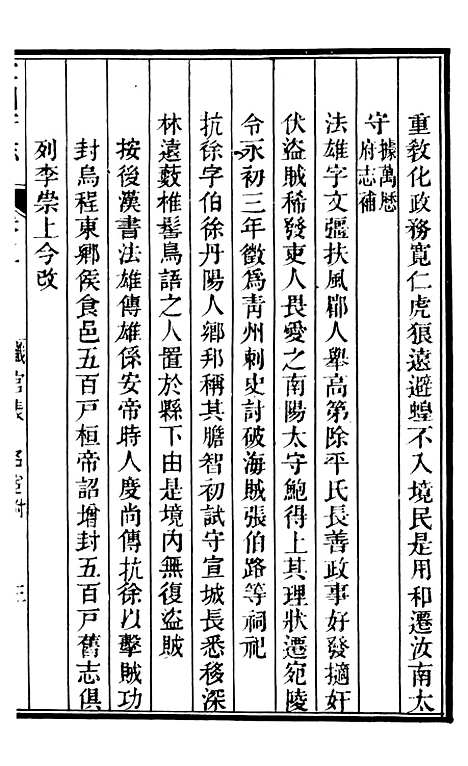 重教化政務寬仁虎狼遠避蝗不入境民是用和遷汝南太
守據萬厯府志補
法雄字文彊扶風郿人舉高第除平氏長善政事好發擿奸
伏盜賊稀發吏人畏愛之南陽太守鮑得上其理狀遷宛陵
令永初三年徵爲青州刺史討破海賊張伯路等祠祀
抗徐字伯徐丹陽人鄉邦稱其膽智初試守宣城長悉移深
林遠藪椎髻鳥語之人置於縣下由是境內無復盜賊
按後漢書法雄傳雄係安帝時人度尚傳抗徐以擊賊功
封烏程東鄉侯食邑五百戸桓帝詔增封五百戸舊志俱
列李崇上今改
職官表
名宦附
三